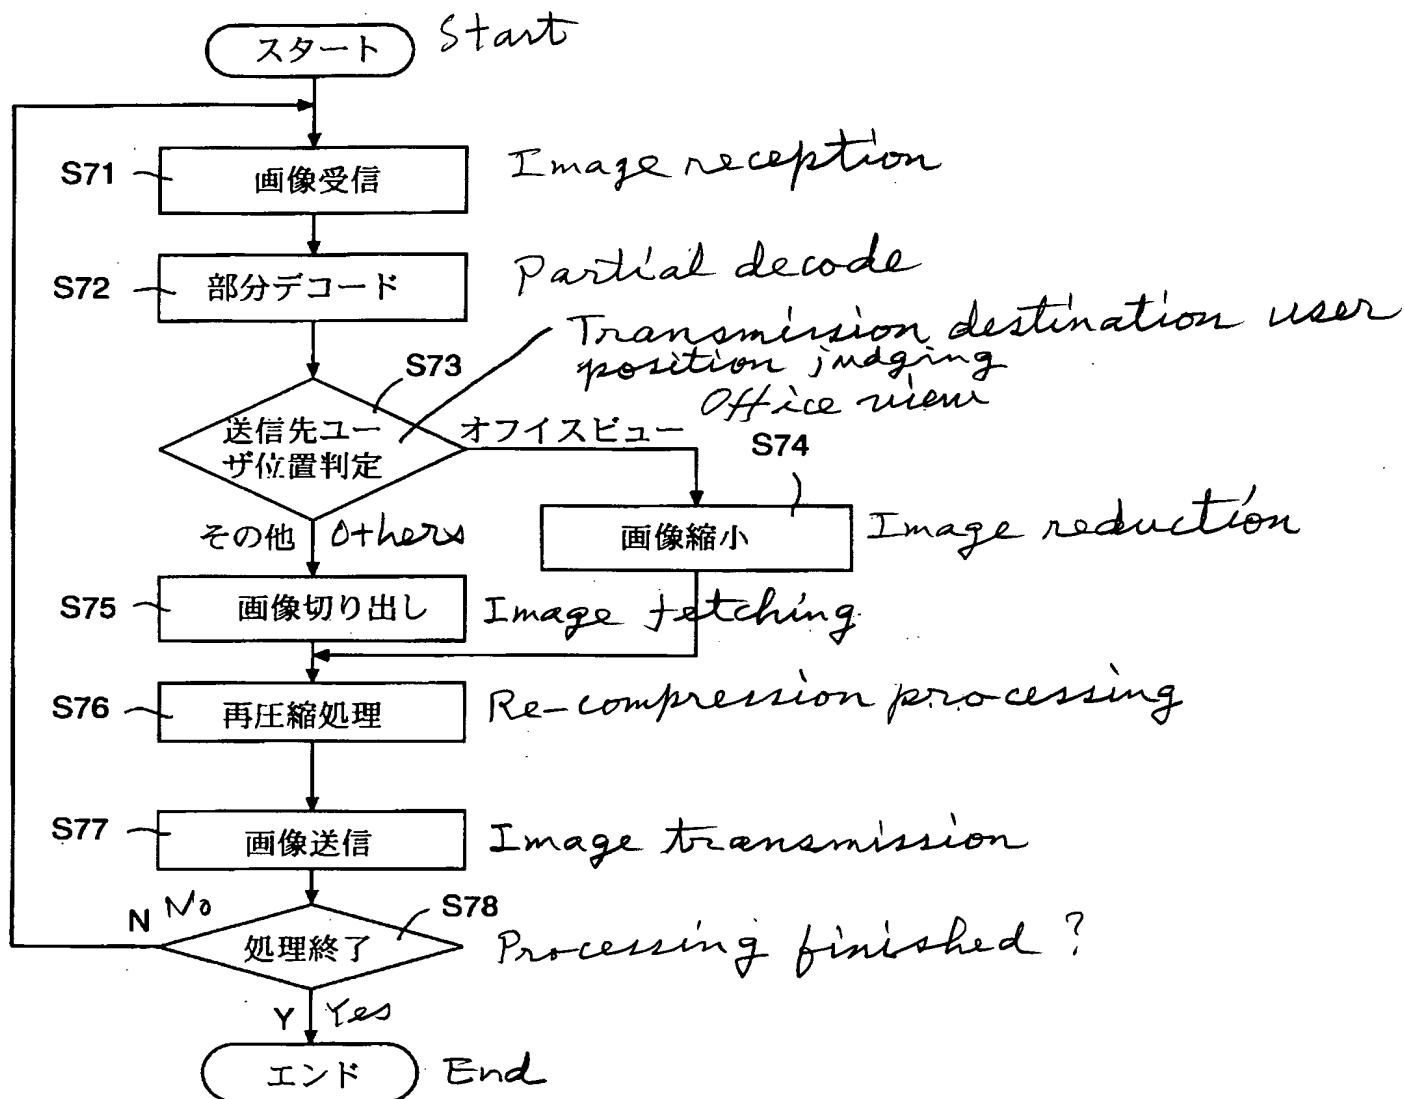 スタート Start
S71 画像受信 Image reception
S72 部分デコード Partial decode
Transmission destination user
position judging
Office view
S73
送信先ユー
ザ位置判定
オフィスビュー
S74
画像縮小 Image reduction
その他 Others
S75 画像切り出し Image fetching
S76 再圧縮処理 Re-compression processing
S77 画像送信 Image transmission
N No
S78
処理終了 Processing finished ?
Y Yes
エンド End